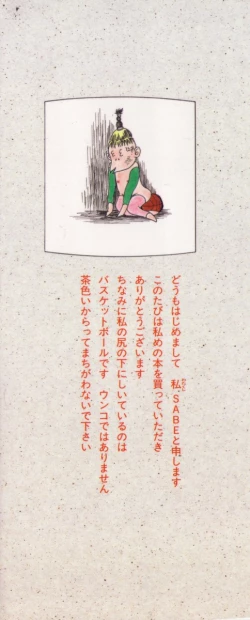 どうもはじめまして　私、SABEと申します
このたびは私めの本を買っていただき
ありがとうございます
ちなみに私の尻の下にしいているのは
バスケットボールです　ウンコではありません
茶色いからってまちがわないで下さい